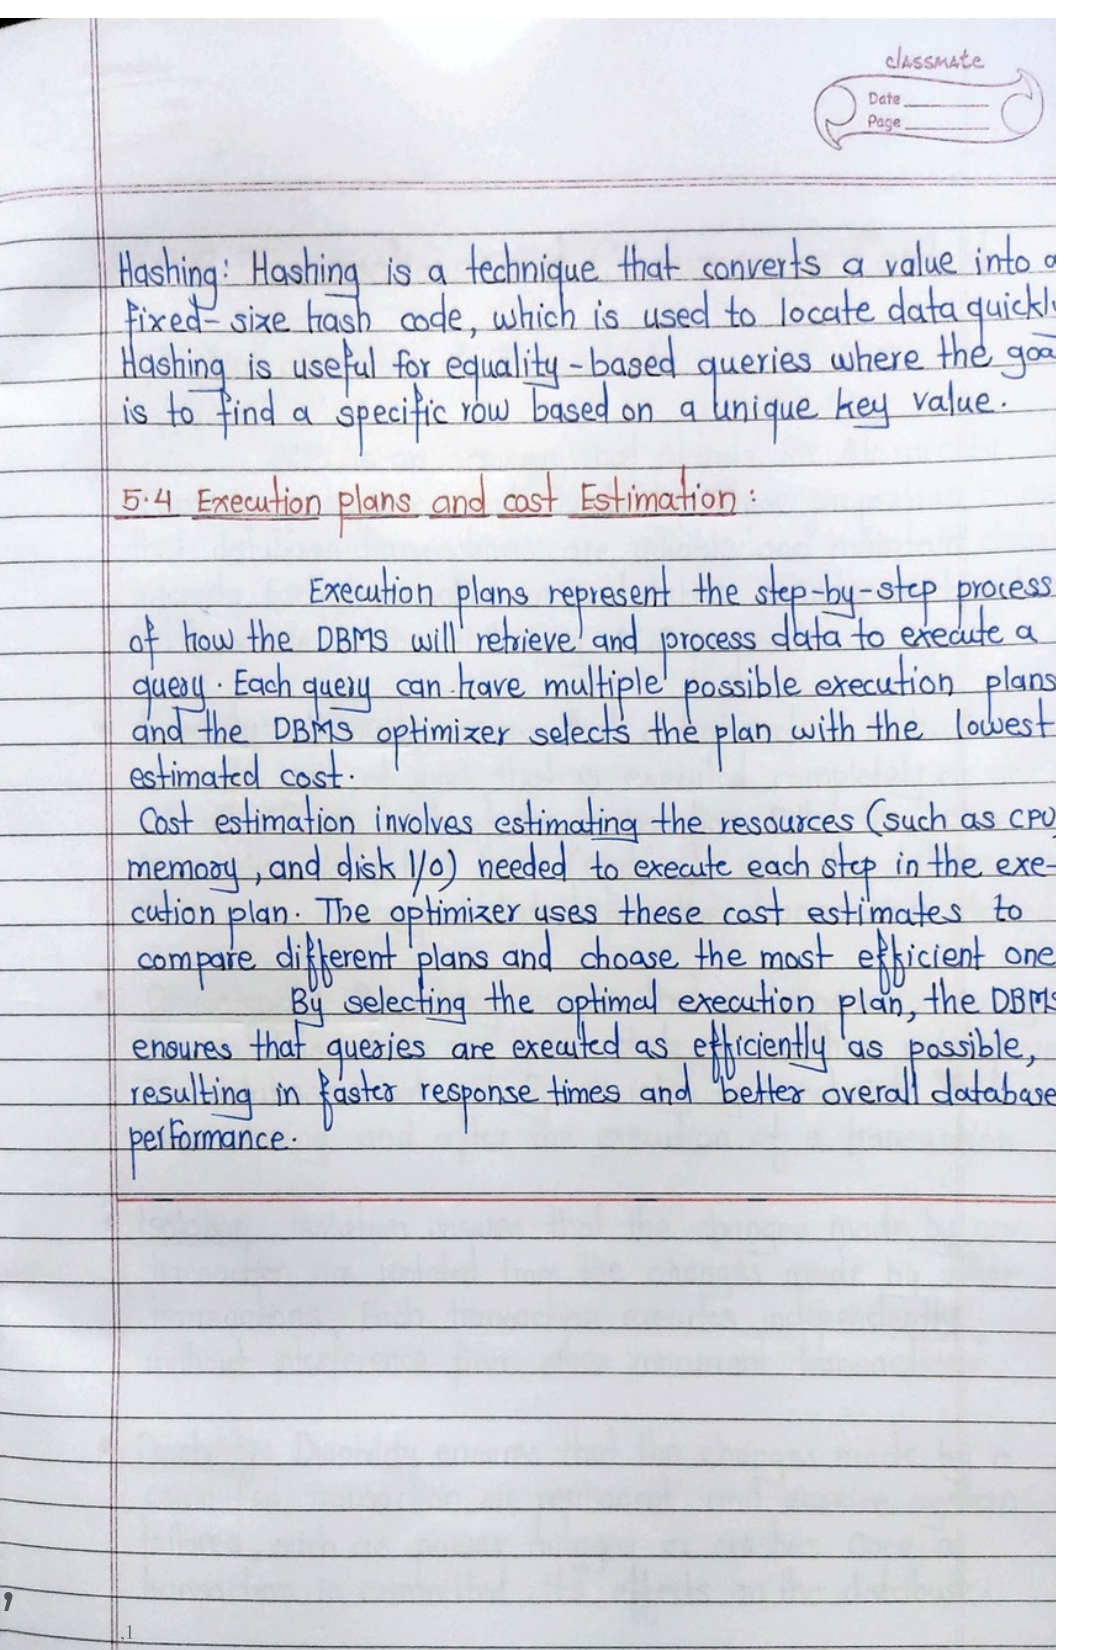 classmate
Date
Page
Hashing: Hashing is a technique that converts a value into a
fixed-size hash code, which is used to locate data quickl
Hashing is useful for equality-based queries where the goa
is to find a specific row based on a unique key value.
5.4 Execution plans and cost Estimation:
Execution plans represent the step-by-step process
of how the DBMS will retrieve and process data to execute a
query. Each query can have multiple possible execution plans
and the DBMS optimizer selects the plan with the lowest
estimated cost.
Cost estimation involves estimating the resources (such as CPU
memory, and disk I/O) needed to execute each step in the exe-
cution plan. The optimizer uses these cost estimates to
compare different plans and choose the most efficient one
By selecting the optimal execution plan, the DBMS
ensures that queries are executed as efficiently as possible,
resulting in faster response times and better overall database
performance.
,
.1